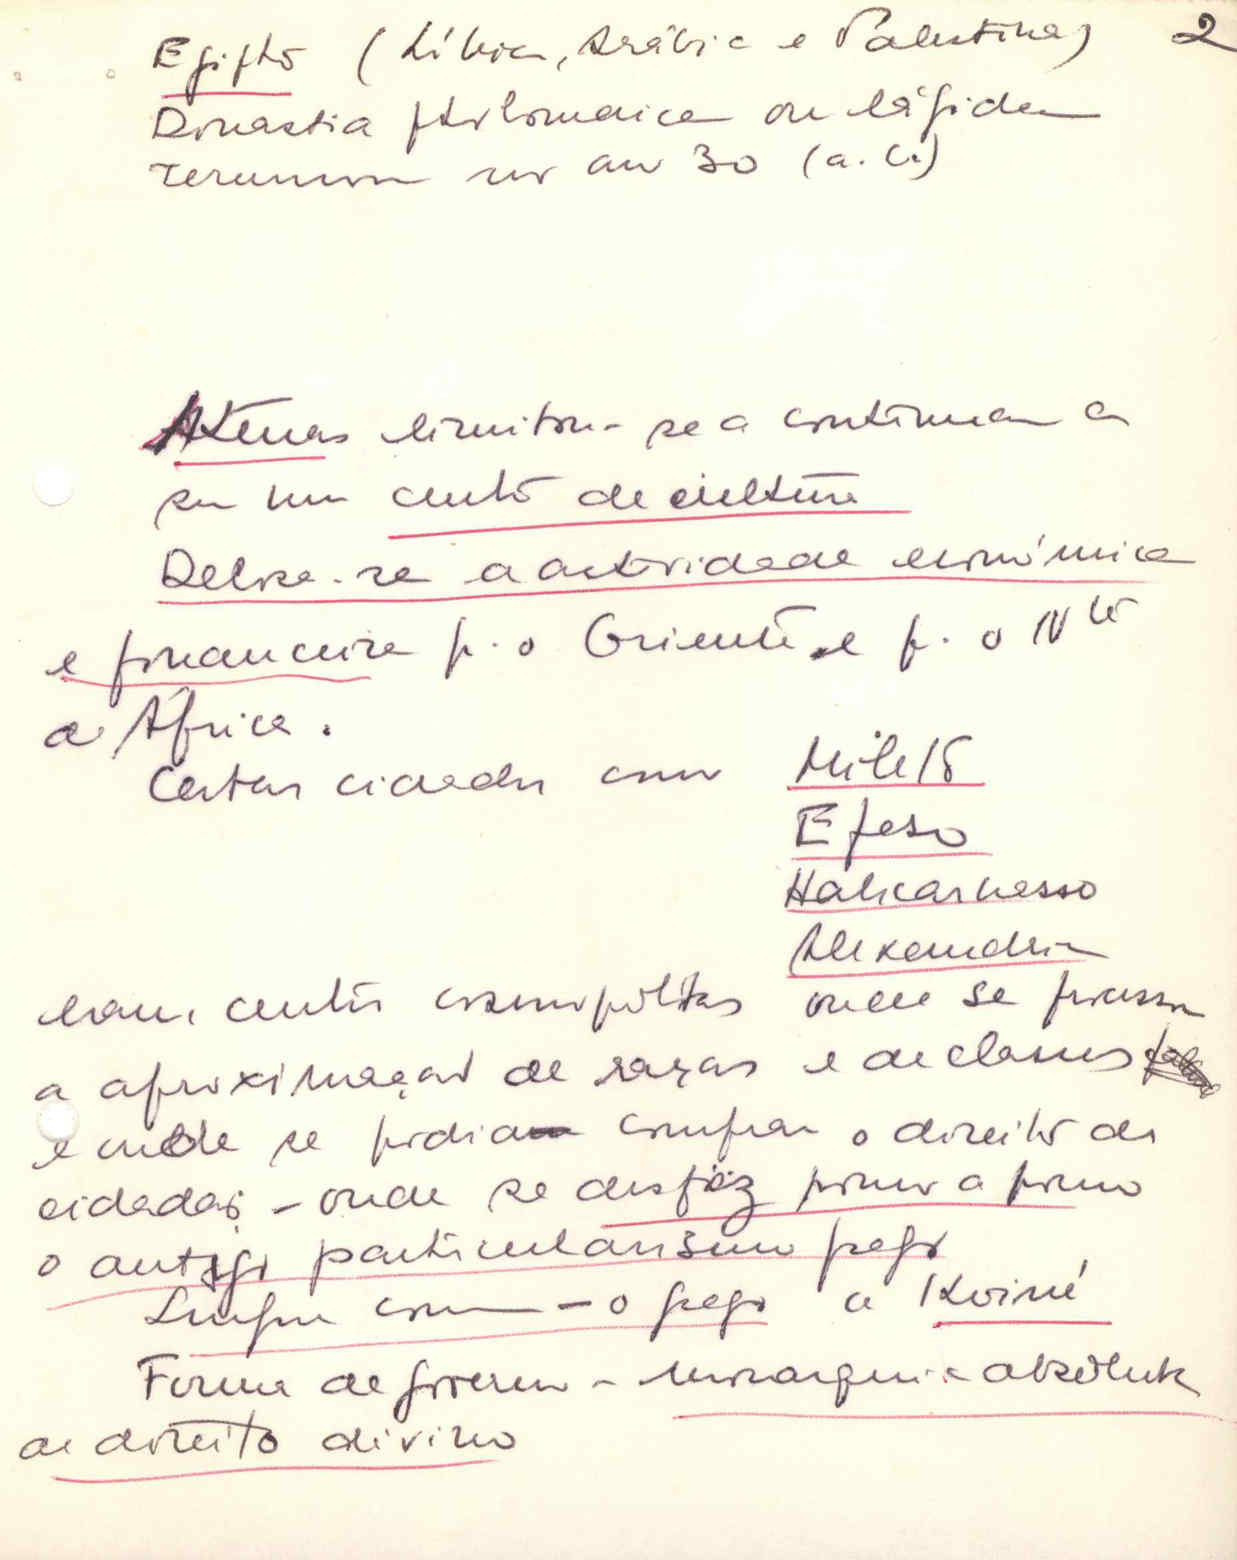 2
Egipto (Líbia, Arábia e Palestina)
Dinastia ptolomaica ou lágida
terminou no ano 30 (a.C.)
Atenas limitou-se a continuar a
ser um centro de cultura
Deloca-se a autoridade económica
e financeira p. o Oriente e p. o Nte
de África.
Certas cidades como Mileto
Efeso
Halicarnasso
Alexandria
eram centros cosmopolitas onde se processou
a aproximação de raças e de classes
e onde se podia comprar o direito de
cidadão - onde se desfez pouco a pouco
o antigo particularismo grego
Lingua comum - o grego a Koiné
Forma de governo - monarquia absoluta
de direito divino